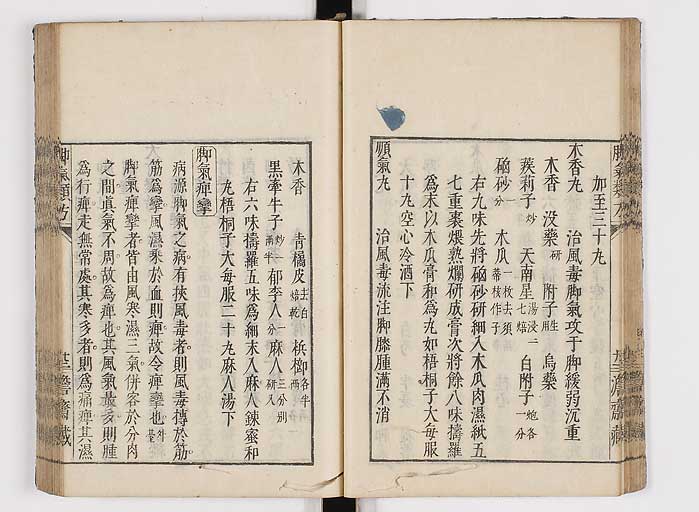 加至三十丸
木香丸　治風毒脚氣攻于脚緩弱沉重
木香　没藥研　附子生　烏藥
蒺莉子炒　天南星湯浸二七焙　白附子炮各一分
硇砂一分　木瓜一枚去須蒂核作子
右九味先將硇砂研細入木瓜濕紙五
七重裹煨熟爛研成膏次將餘八味擣羅
爲末以木瓜膏和爲丸如梧桐子大每服
十丸空心冷酒下
順氣丸　治風毒流注脚膝腫滿不消
脚氣類方
木香　青橘皮去白焙乾　梹榔各半兩
黑牽牛子炒二兩半　郁李人一分　麻人三分別研入
右六味擣羅五味爲細末入麻人鍊蜜和
丸梧桐子大每服二十丸麻人湯下
脚氣痺攣
病源脚氣之病有挾風毒者則風毒搏於筋
筋爲攣風濕乘於血則痺故令痺攣也外臺
脚氣痺攣者皆由風寒濕三氣併客於分肉
之間眞氣不周故爲痺也其風氣最多則腫
爲行痺走無常處其寒多者則爲痛痺其濕
脚氣類方